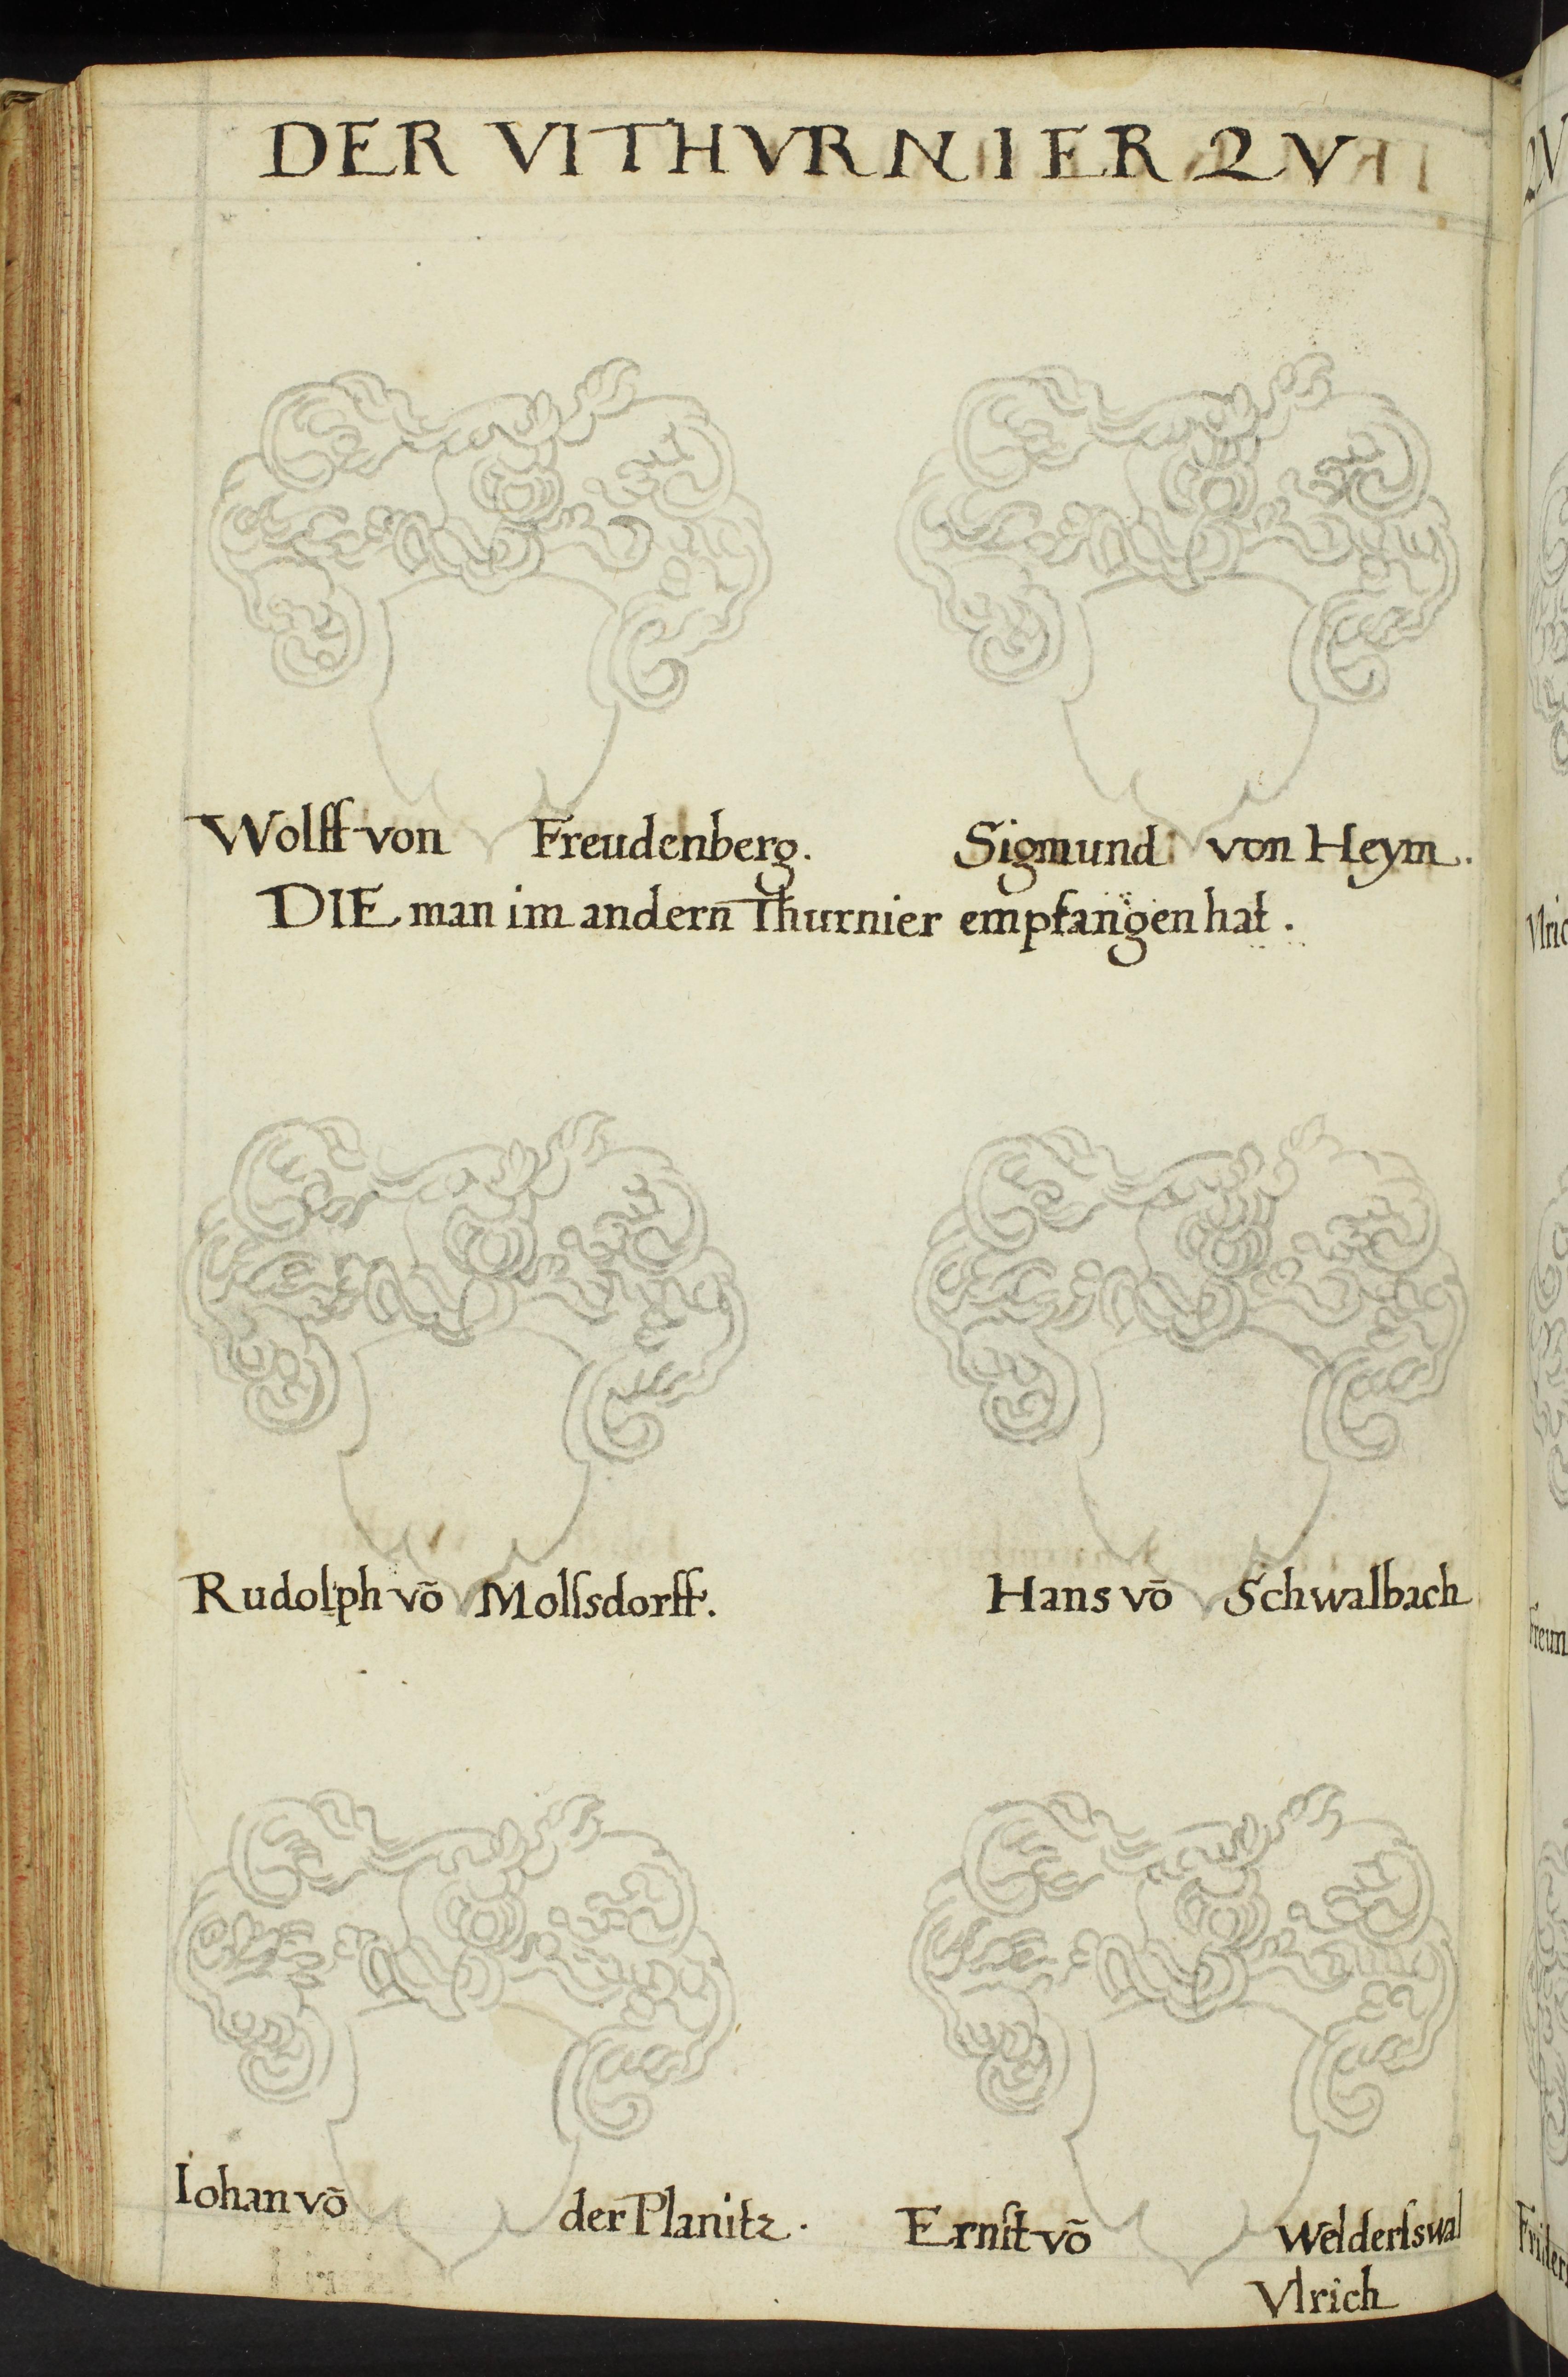 DER VI THVRNIER ZV
Wolff von Freudenberg. Sigmund von Heym.
DIE man im andern Thurnier empfangen hat.
Rudolph vō Molſsdorff. Hans vō Schwalbach
Iohan vō der Planitz. Ernſt vō Welderſswal
Vlrich